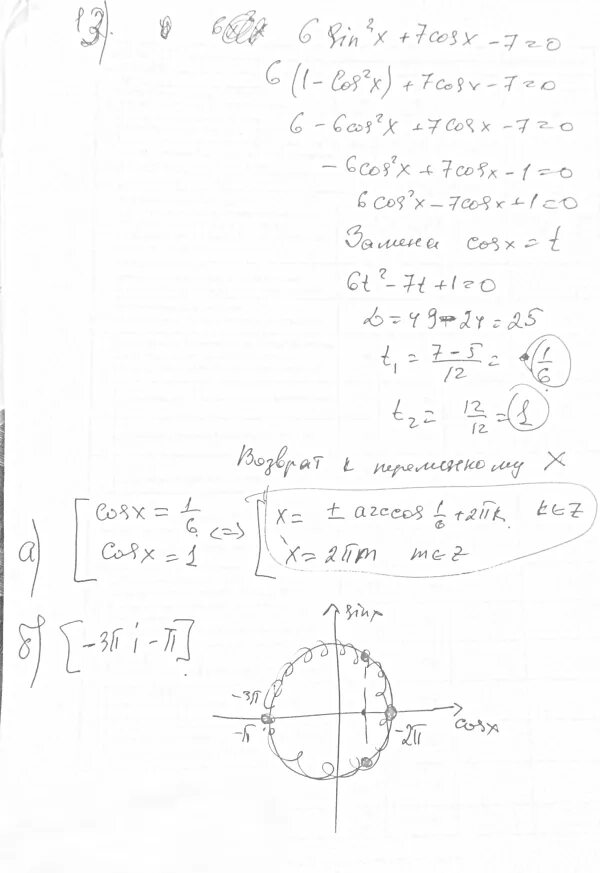 13). 6 sin²x + 7cosx - 7 = 0
6 (1 - cos²x) + 7cosx - 7 = 0
6 - 6cos²x + 7cosx - 7 = 0
- 6cos²x + 7cosx - 1 = 0
6cos²x - 7cosx + 1 = 0
Замена cosx = t
6t² - 7t + 1 = 0
D = 49 - 24 = 25
t₁ = (7-5)/12 = 1/6
t₂ = 12/12 = 1
Возврат к переменному x
а) [ cosx = 1/6 <=> [ x = ± arccos 1/6 + 2πk, k∈Z
cosx = 1 x = 2πm m∈Z
б) [-3π; -π]
sinx
-3π
-π
-2π
cosx